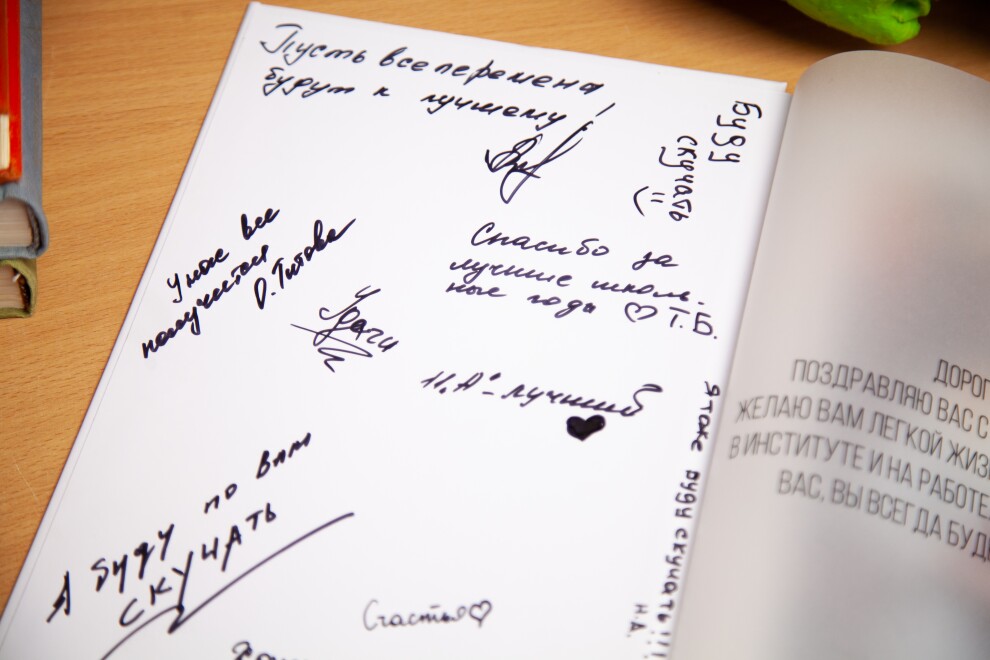 Пусть все перемена
будут к лучшему!
Буду
скучать
Спасибо за
лучшие школь-
ные годы ♡ Т.Б.
У нас все
получится
О. Титова
Удачи
Н.А - лучший
Я тоже буду скучать!!!
Н.А.
А буду по вам
скучать
Счастья♡
ДОРОГ
ПОЗДРАВЛЯЮ ВАС С
ЖЕЛАЮ ВАМ ЛЕГКОЙ ЖИЗ
В ИНСТИТУТЕ И НА РАБОТЕ
ВАС, ВЫ ВСЕГДА БУД